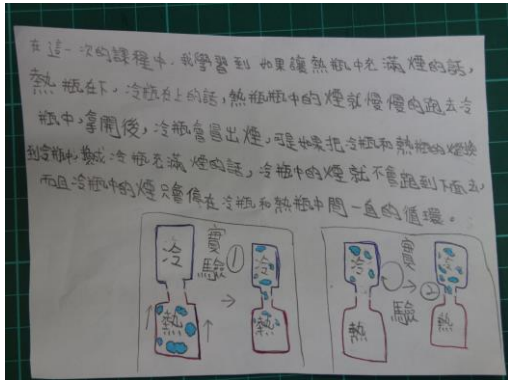 在這一次的課程中,我學習到如果讓熱瓶中充滿煙的話,
熱瓶在下,冷瓶在上的話,熱瓶瓶中的煙就慢慢的跑去冷
瓶中,拿開後,冷瓶會冒出煙,可是如果把冷瓶和熱瓶的煙換
到冷瓶中,換成冷瓶充滿煙的話,冷瓶中的煙就不會跑到下面去,
而且冷瓶中的煙只會停在冷瓶和熱瓶中間一直的循環。
實驗①
冷
熱
冷
熱
實驗②
冷
熱
冷
熱